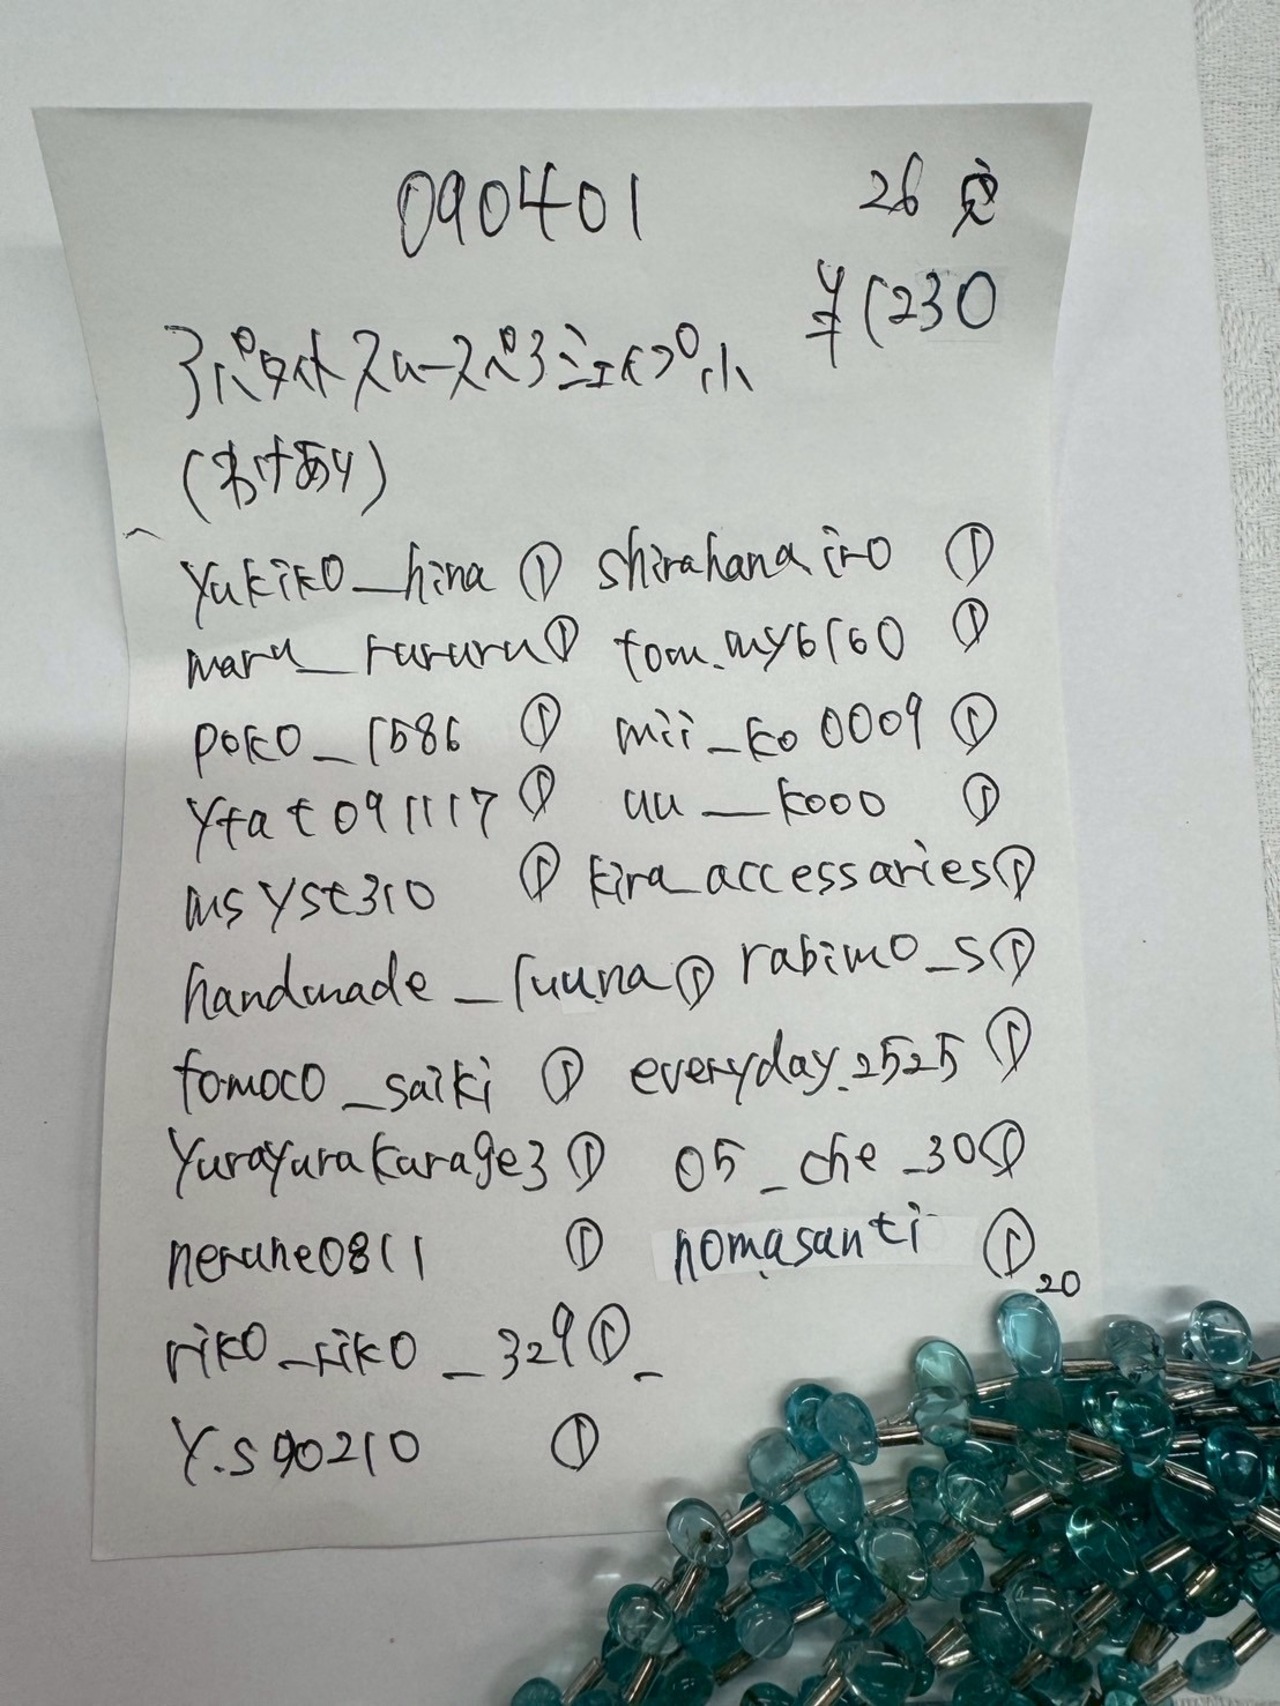 090401 26
¥1230
アパタイトスムースペアシェイプ小
(わけあり)
yukiko_hina ① shirahanairo ①
maru_rururu ① tom.my6160 ①
poko_1586 ① mii_ko0009 ①
ytat091117 ① uu__kooo ①
msyst310 ① kira_accessaries ①
handmade_luuna ① rabimo_s ①
tomoco_saiki ① everyday.2525 ①
yurayurakarage3 ① 05_che_30 ①
nerune0811 ① nomasanti ①
20
riko_riko_329 ①
Y.s90210 ①